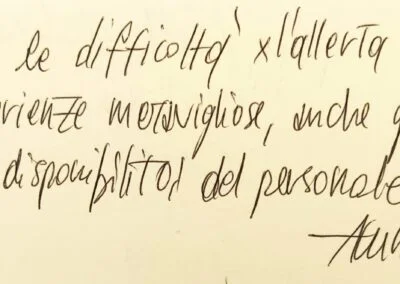 le difficoltà x l'allerta
rienze meravigliose, anche
disponibilità del personale